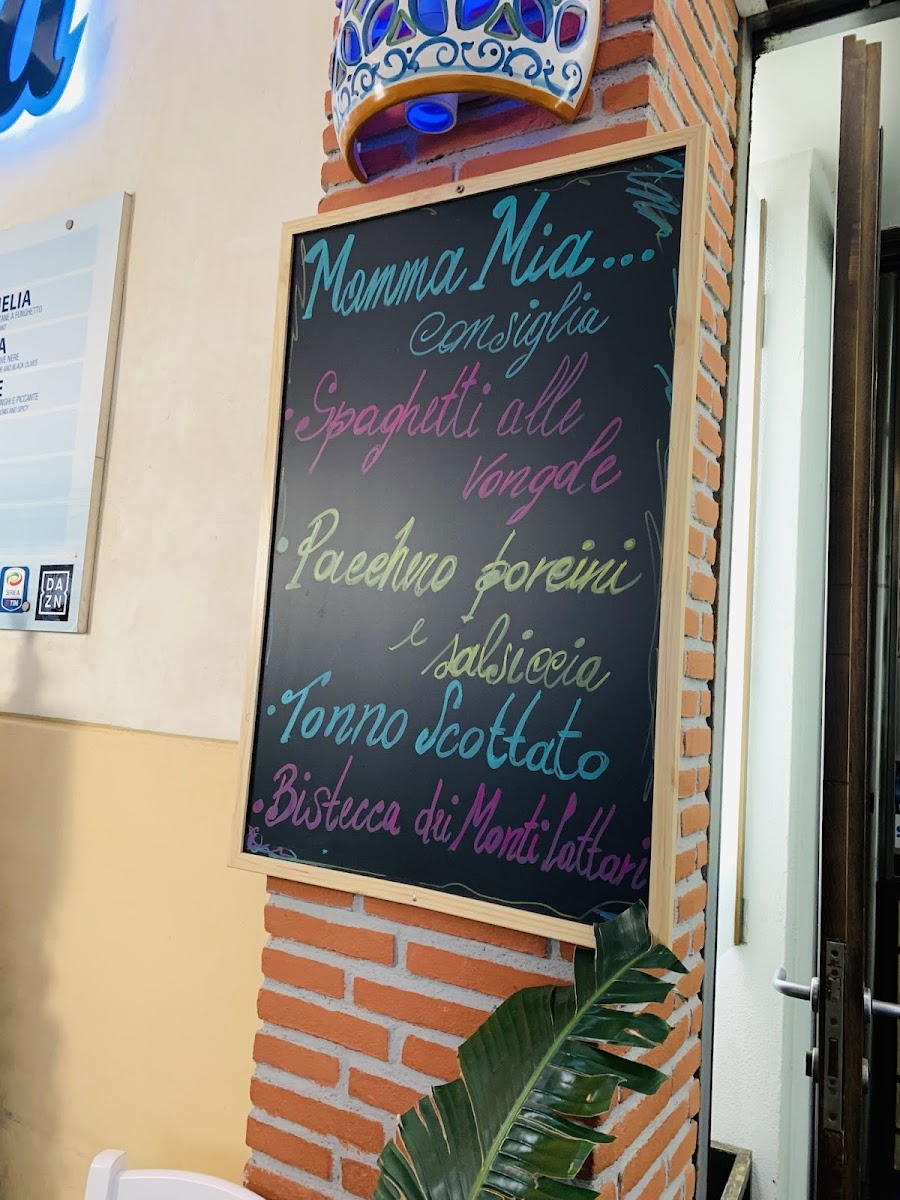 DELIA
ZANE A FUNGHETTO
A
IVE NERE
E AND BLACK OLIVES
E
NGHI E PICCANTE
OOMS AND SPICY
SERIE A
TIM
DA
ZN
Mamma Mia...
consiglia
· Spaghetti alle
vongole
· Pacchero porcini
e
salsiccia
· Tonno Scottato
· Bistecca dei Monti Lattari